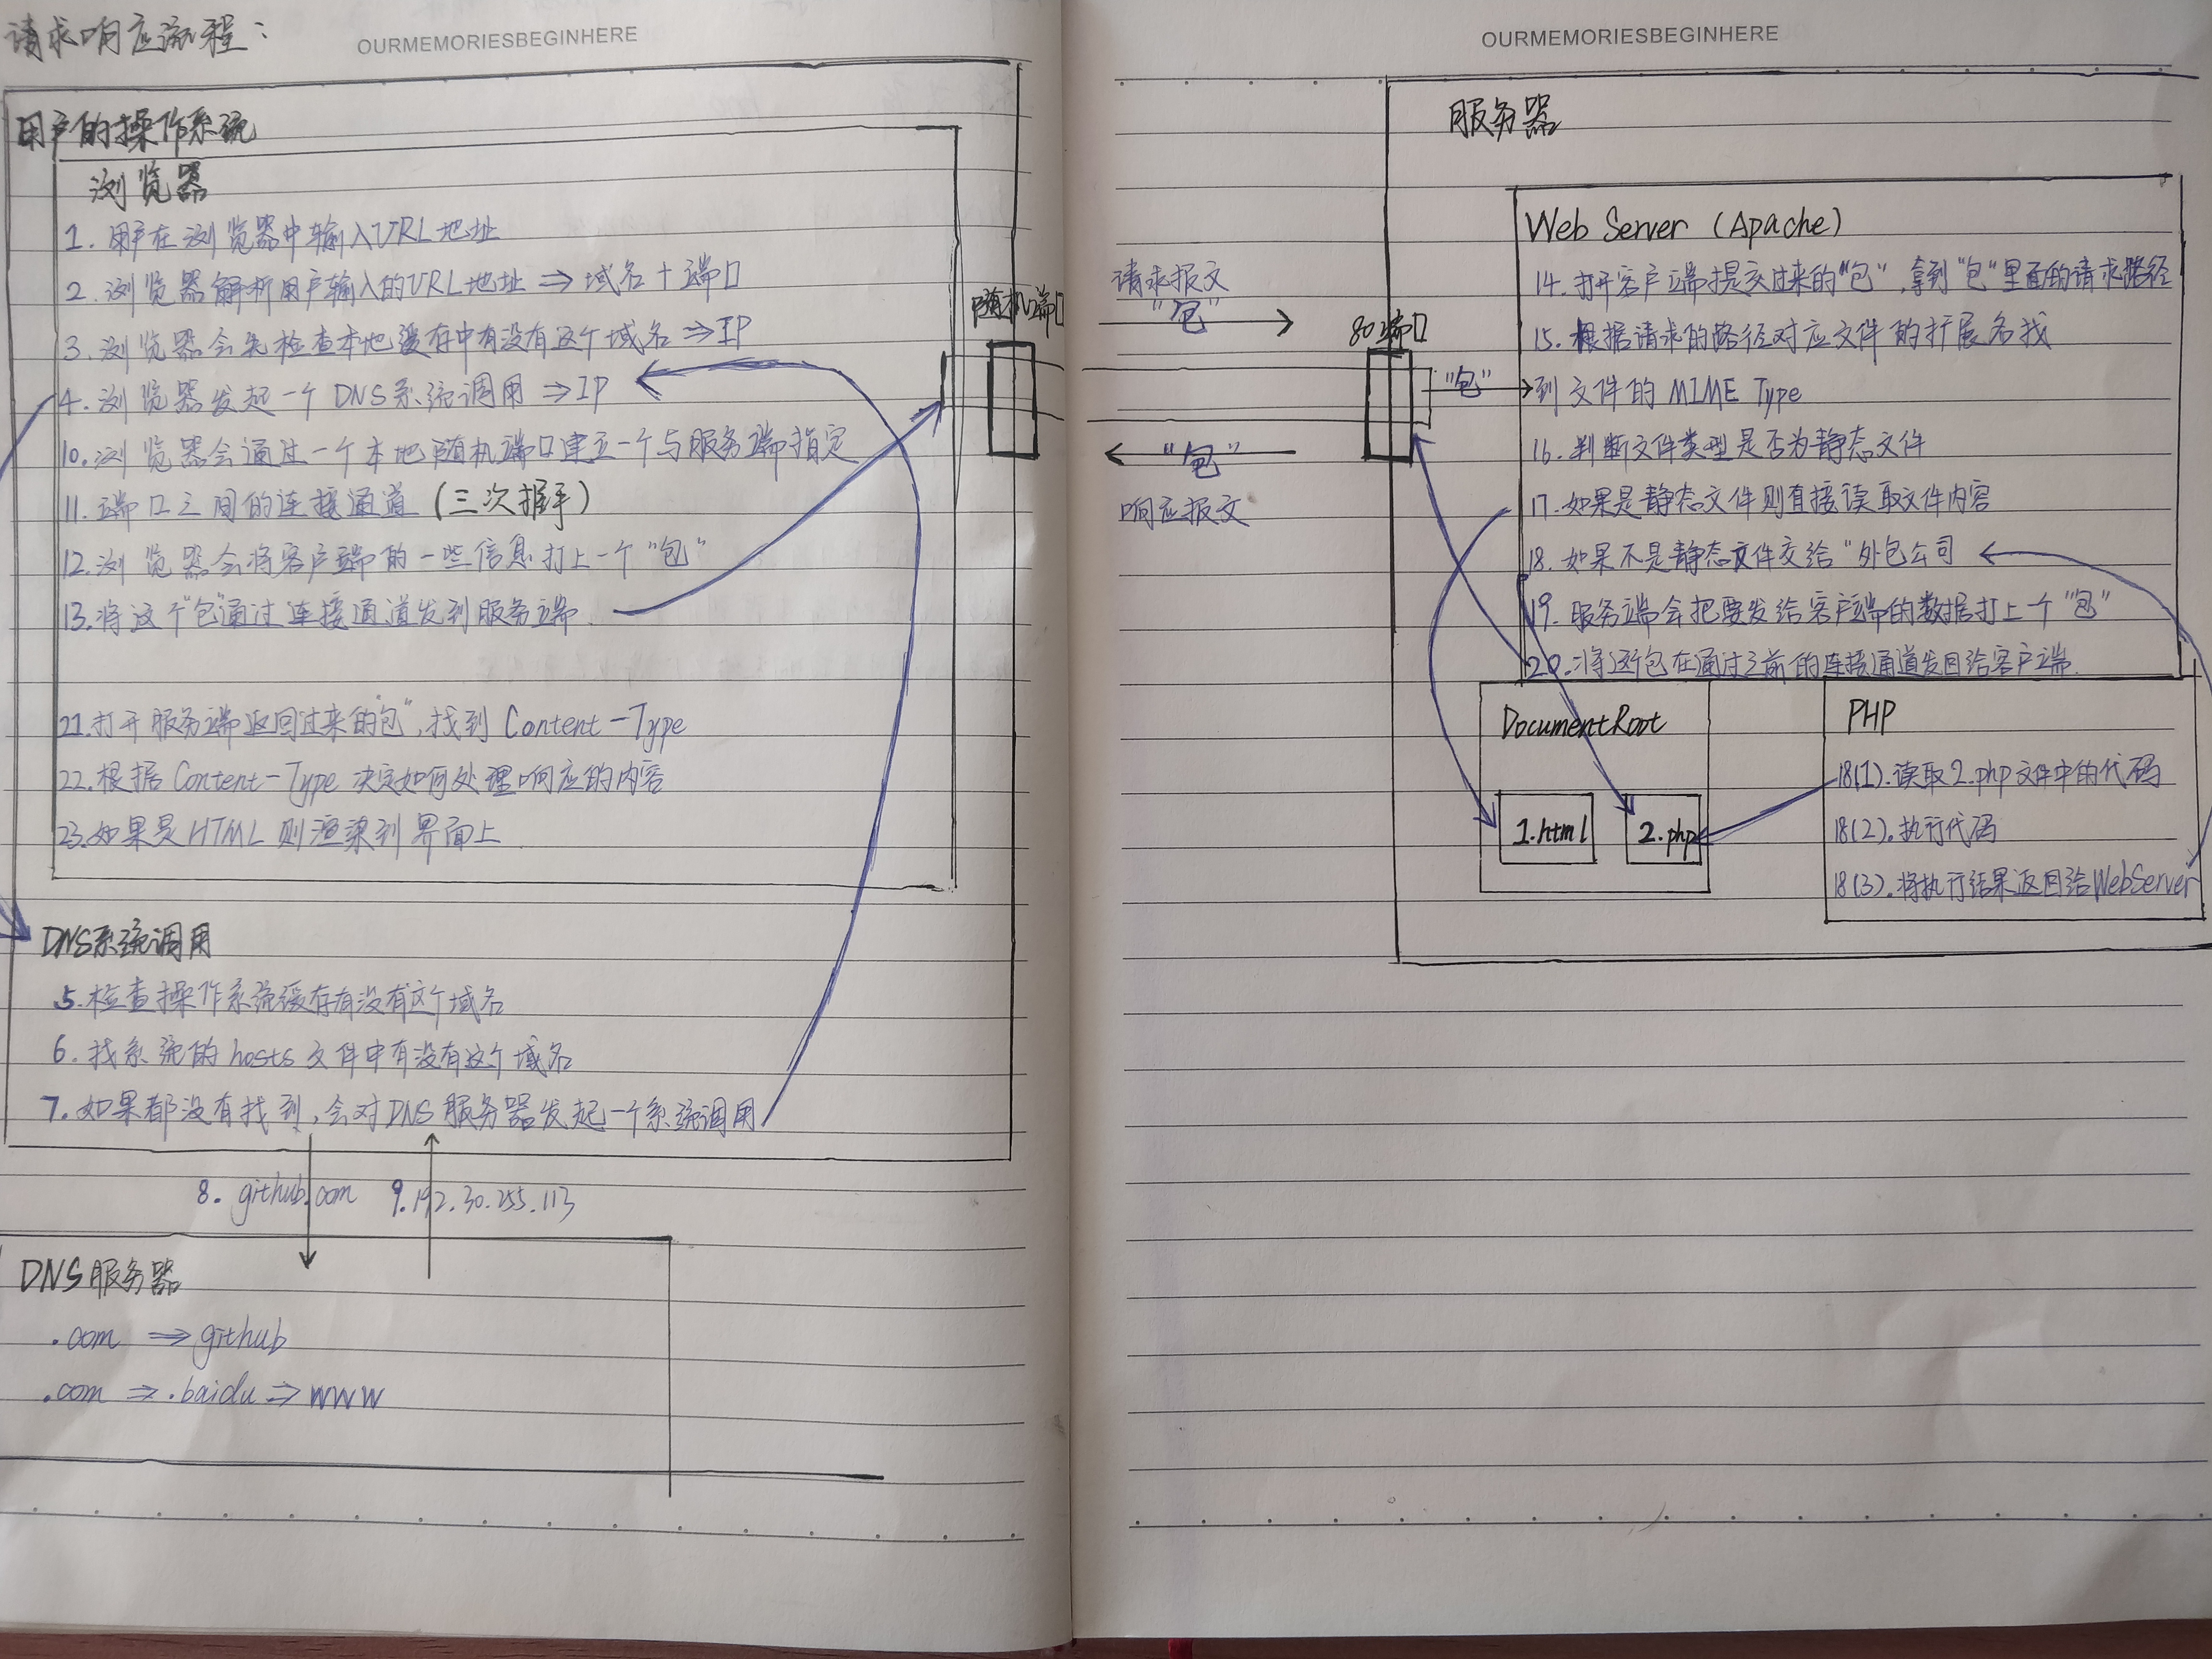 请求响应流程:
OURMEMORIESBEGINHERE
用户的操作系统
浏览器
1. 用户在浏览器中输入URL地址
2. 浏览器解析用户输入的URL地址 ⇒ 域名+端口
3. 浏览器会先检查本地缓存中有没有这个域名 ⇒ IP
4. 浏览器发起一个DNS系统调用 ⇒ IP
10. 浏览器会通过一个本地随机端口建立一个与服务端指定
11. 端口之间的连接通道 (三次握手)
12. 浏览器会将客户端的一些信息打上一个"包"
13. 将这个"包"通过连接通道发到服务端
21. 打开服务端返回过来的"包", 找到 Content-Type
22. 根据 Content-Type 决定如何处理响应的内容
23. 如果是HTML则渲染到界面上
DNS系统调用
5. 检查操作系统缓存有没有这个域名
6. 找系统的hosts文件中有没有这个域名
7. 如果都没有找到, 会对DNS服务器发起一个系统调用
8. github.com 9. 192.30.255.113
DNS服务器
.com ⇒ github
.com ⇒ .baidu ⇒ www
随机端口
OURMEMORIESBEGINHERE
请求报文
"包"
"包"
响应报文
80端口
"包"
服务器
Web Server (Apache)
14. 打开客户端提交过来的"包", 拿到"包"里面的请求路径
15. 根据请求的路径对应文件的扩展名找
到文件的 MIME Type
16. 判断文件类型是否为静态文件
17. 如果是静态文件则直接读取文件内容
18. 如果不是静态文件交给"外包公司
19. 服务端会把要发给客户端的数据打上一个"包"
20. 将这个包在通过之前的连接通道发回给客户端.
DocumentRoot
1.html
2.php
PHP
18(1). 读取2.php文件中的代码
18(2). 执行代码
18(3). 将执行结果返回给WebServer